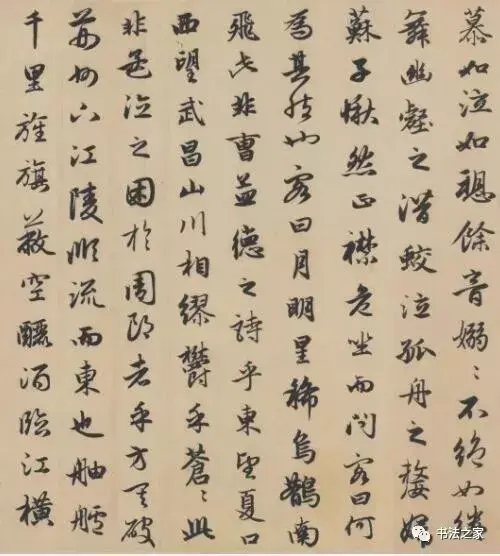 慕如泣如聼餘音嫋〻不絶如縷
舞幽壑之潛蛟泣孤舟之嫠婦
蘇子愀然正襟危坐而問客曰何
為其然也客曰月明星稀烏鵲南
飛此非曹孟德之詩乎東望夏口
西望武昌山川相繆鬱乎蒼〻此
非孟德之困於周郎者乎方其破
荊州下江陵順流而東也舳艫
千里旌旗蔽空釃酒臨江橫
书法之家